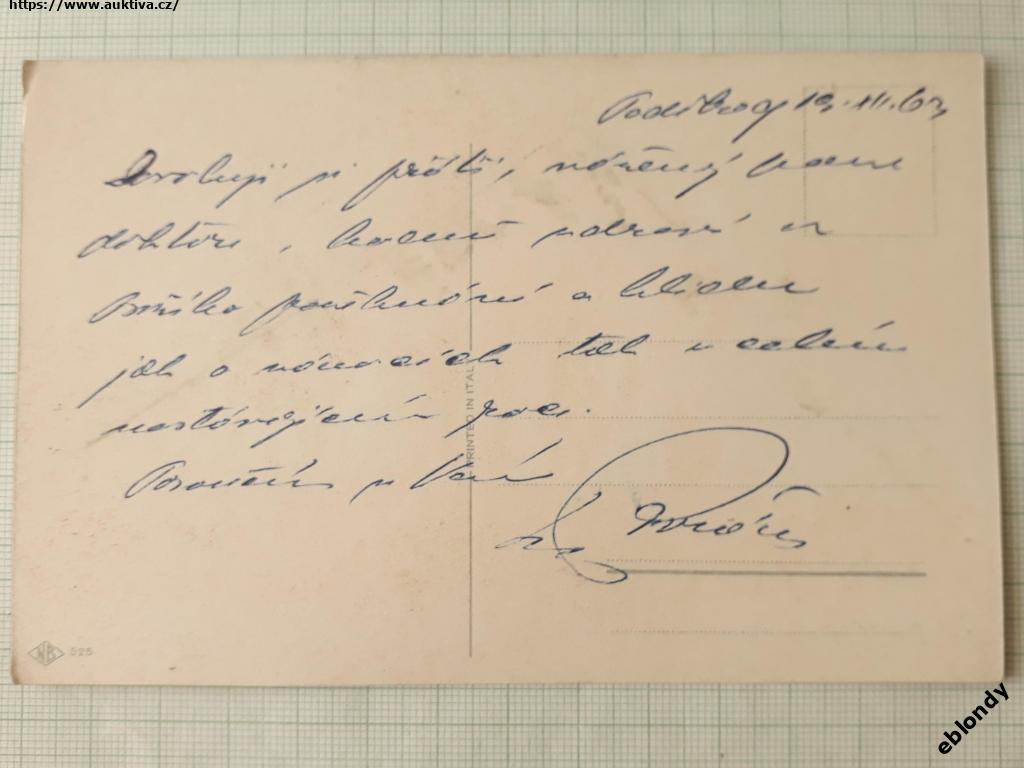 https://www.auktiva.cz/
Poděbrady 19. XII. 63
Dovoluji si přáti, vážený pane
doktore, hodně zdraví a
Božího požehnání a klidu
jak o vánocích tak v celém
nastávajícím roce.
Poroučím se Vám
PRINTED IN ITALY
WB 525
eblondy